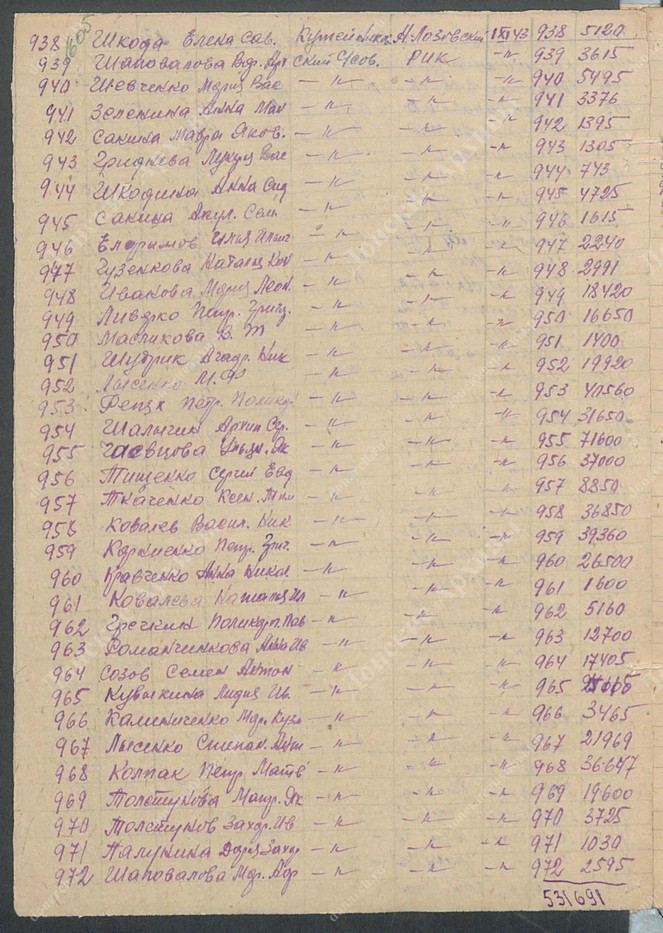 605
938 Шкода Елена Сав. Кутейник Н. Лозовский 1 XI 43 938 5120
939 Шаповалова Вар. Арт ский Чсов. РИК -"- 939 3615
940 Шевченко Мария Вас -"- -"- -"- 940 5495
941 Зеленина Анна Мак -"- -"- -"- 941 3376
942 Сакина Мавра Яков. -"- -"- -"- 942 1395
943 Вас -"- -"- -"- 943 1305
944 Шкодина Анна Сид -"- -"- -"- 944 743
945 Сакина Акул. Сем -"- -"- -"- 945 4725
946 Илия -"- -"- -"- 946 1615
947 Гузенкова Наталия -"- -"- -"- 947 2240
948 Ивакова Мария Леон. -"- -"- -"- 948 2991
949 Пет. Григ. -"- -"- -"- 949 18420
950 Масликова В. Т -"- -"- -"- 950 16650
951 Ник -"- -"- -"- 951 1400
952 Лысенко М. Ф -"- -"- -"- 952 19920
953 Петр. -"- -"- -"- 953
954 Шалыгин Архип Сер. -"- -"- -"- 954 31650
955 -"- -"- -"- 955 71600
956 Тищенко Сергей Евд -"- -"- -"- 956 37000
957 Ткаченко Ксен. -"- -"- -"- 957 8850
958 Ковалев Васил. Ник -"- -"- -"- 958 36850
959 Корниенко Петр. Григ. -"- -"- -"- 959 39360
960 Кравченко Анна Никол -"- -"- -"- 960 26500
961 Ковалева Наталия Ил -"- -"- -"- 961 1600
962 Гречкин Поликарп. Пав -"- -"- -"- 962 5160
963 Романченкова Анна Ив -"- -"- -"- 963 12700
964 Созов Семен Антон -"- -"- -"- 964 17405
965 Кувыкина Лидия Ив. -"- -"- -"- 965
966 Калиниченко Мар. Кузм -"- -"- -"- 966 3465
967 Лысенко Степан. Ант -"- -"- -"- 967 21969
968 Колпак Петр. Матв -"- -"- -"- 968 36647
969 Толстунова Мавр. Як -"- -"- -"- 969 19600
970 Толстунов Захар. Ив -"- -"- -"- 970 3725
971 Палункина Дария Захар -"- -"- -"- 971 1030
972 Шаповалова Мар. Анд -"- -"- -"- 972 2595
531691